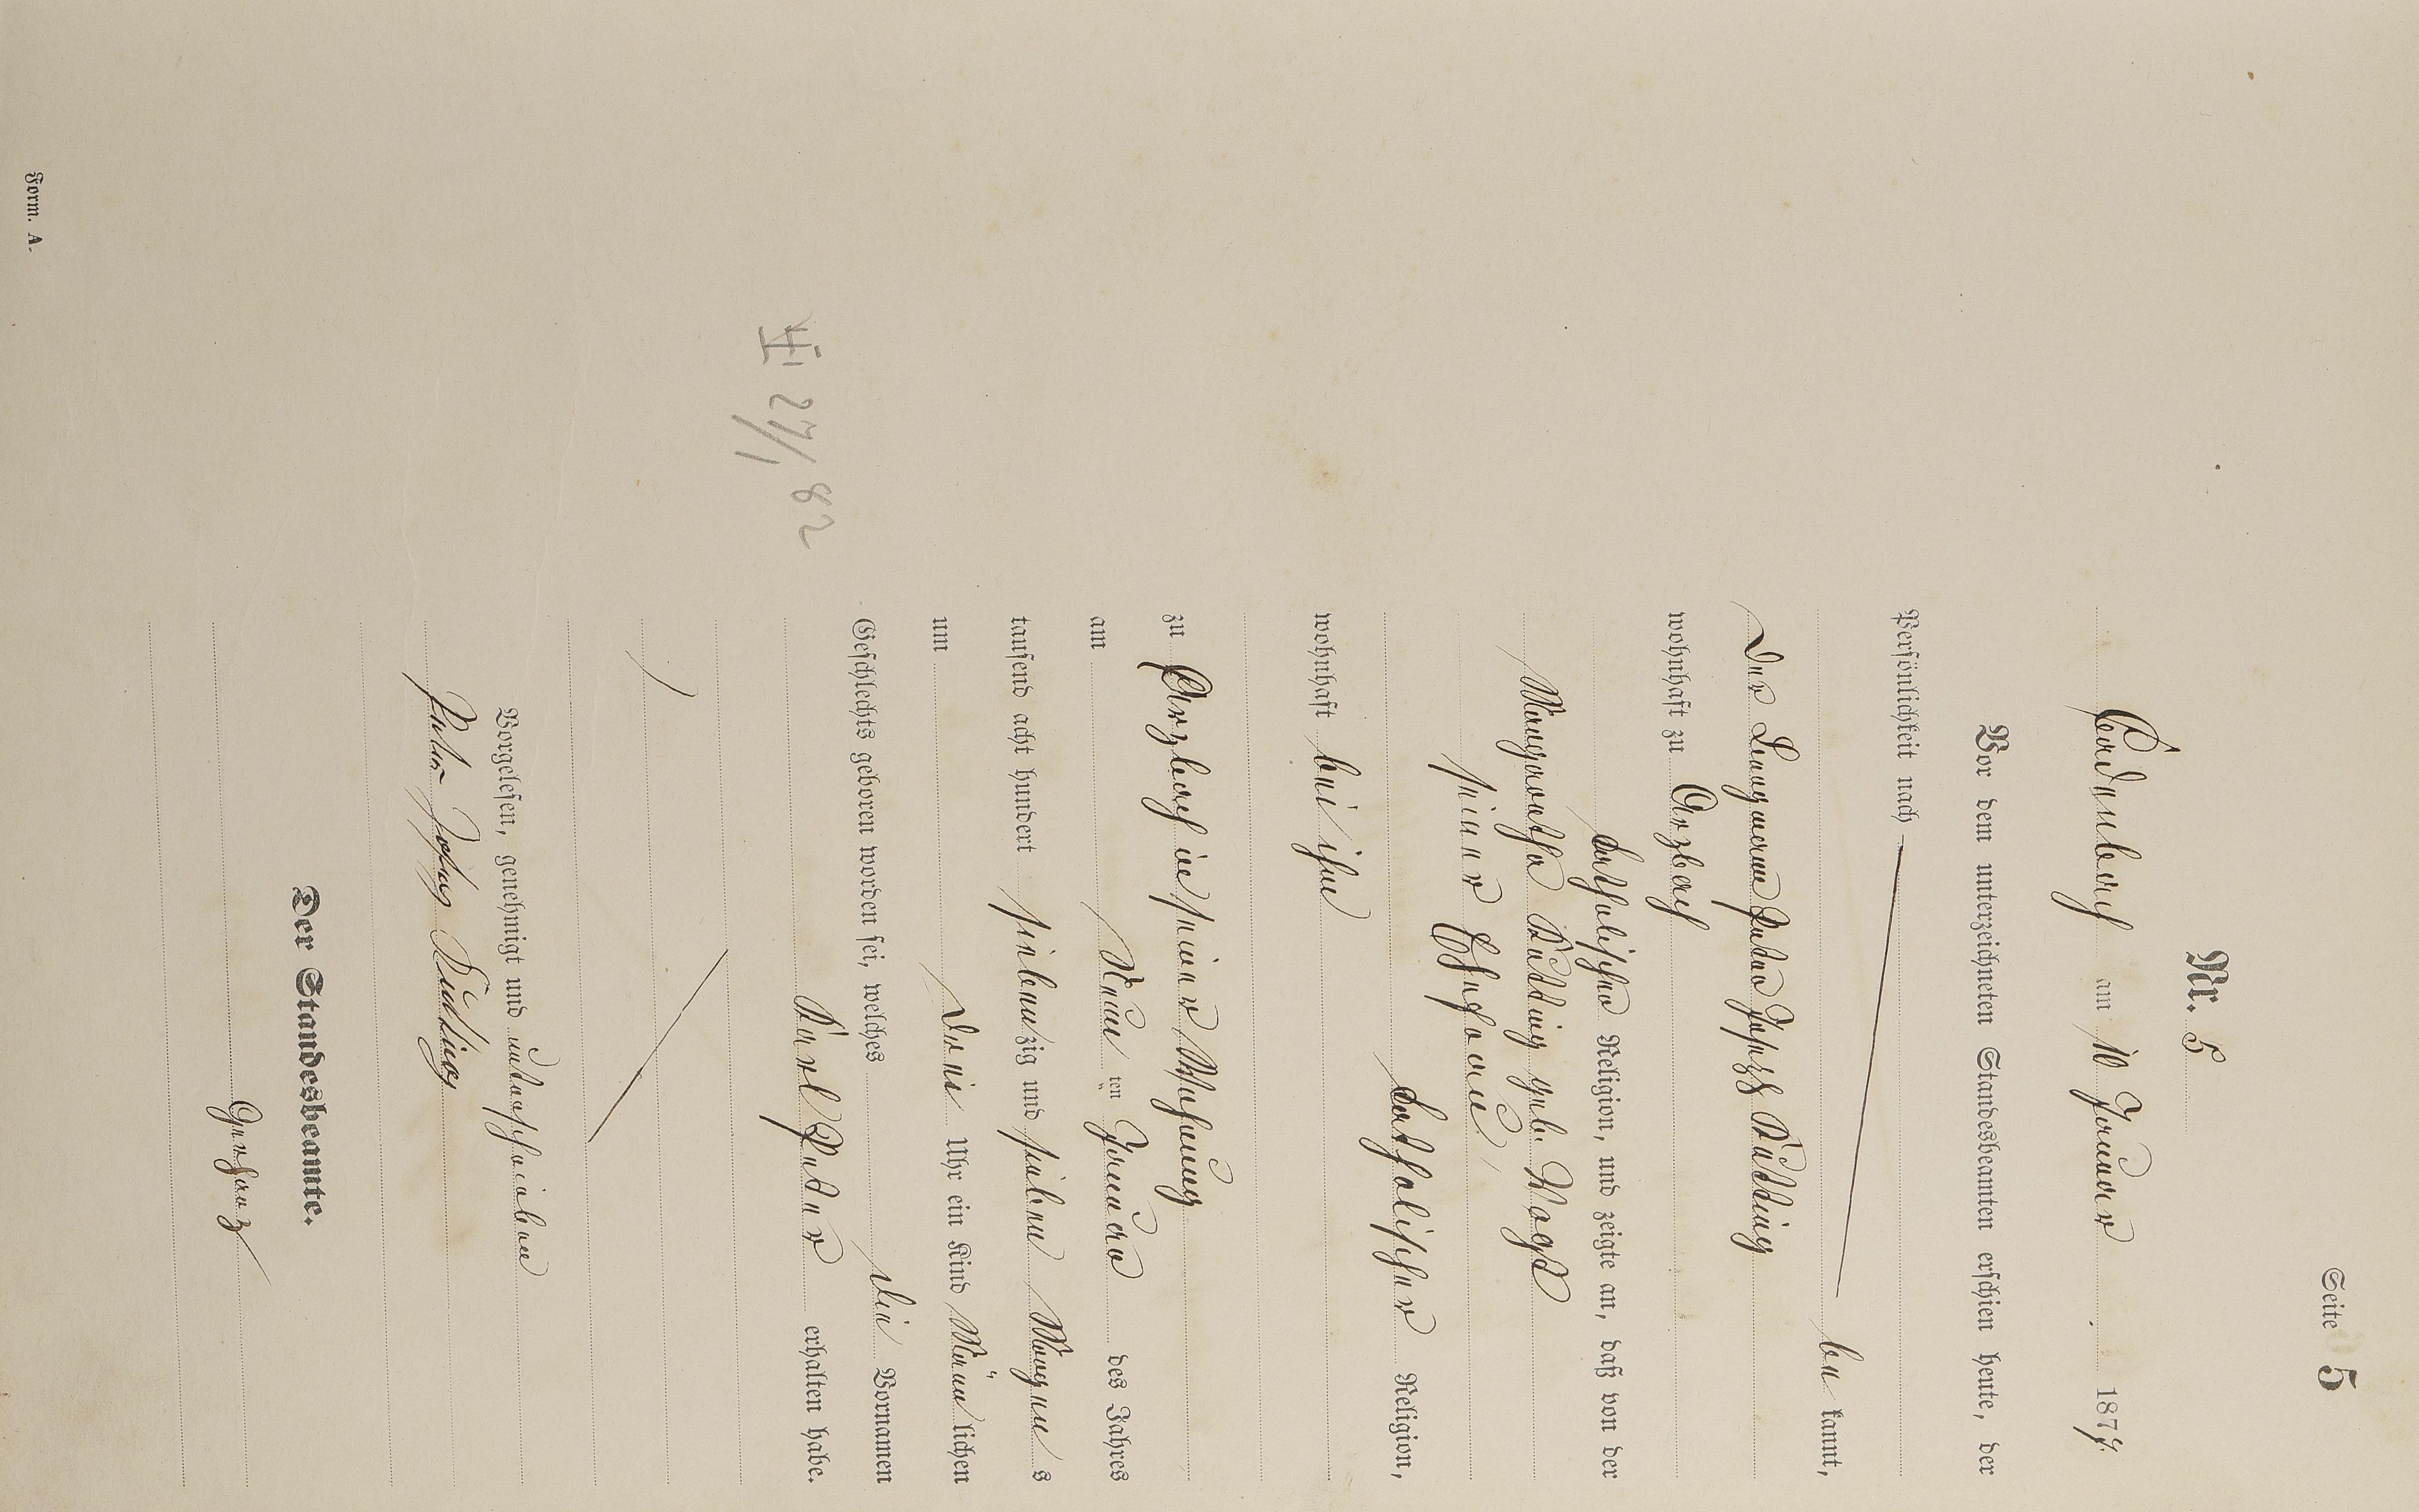 Seite 5
Nr. 5
Cadenbach am 10 Januar 1877.
Vor dem unterzeichneten Standesbeamten erschien heute, der
Persönlichkeit nach
be kannt,
Der Bergmann Peter Joseph Külding
wohnhaft zu Arzbach
katholischer Religion, und zeigte an, daß von der
Margaretha Külding geb. Vogt
seiner Ehefrau,
katholischer Religion,
wohnhaft bei ihm
zu Arzbach in seiner Wohnung
am Neun ten Januar des Jahres
tausend acht hundert sieben zig und sieben Morgen s
um drei Uhr ein Kind Männ lichen
Geschlechts geboren worden sei, welches die Vornamen
Karl Peter erhalten habe.
27/1 82
Vorgelesen, genehmigt und unterschrieben
Peter Joseph Külding
Der Standesbeamte.
Gerharz
Form. A.